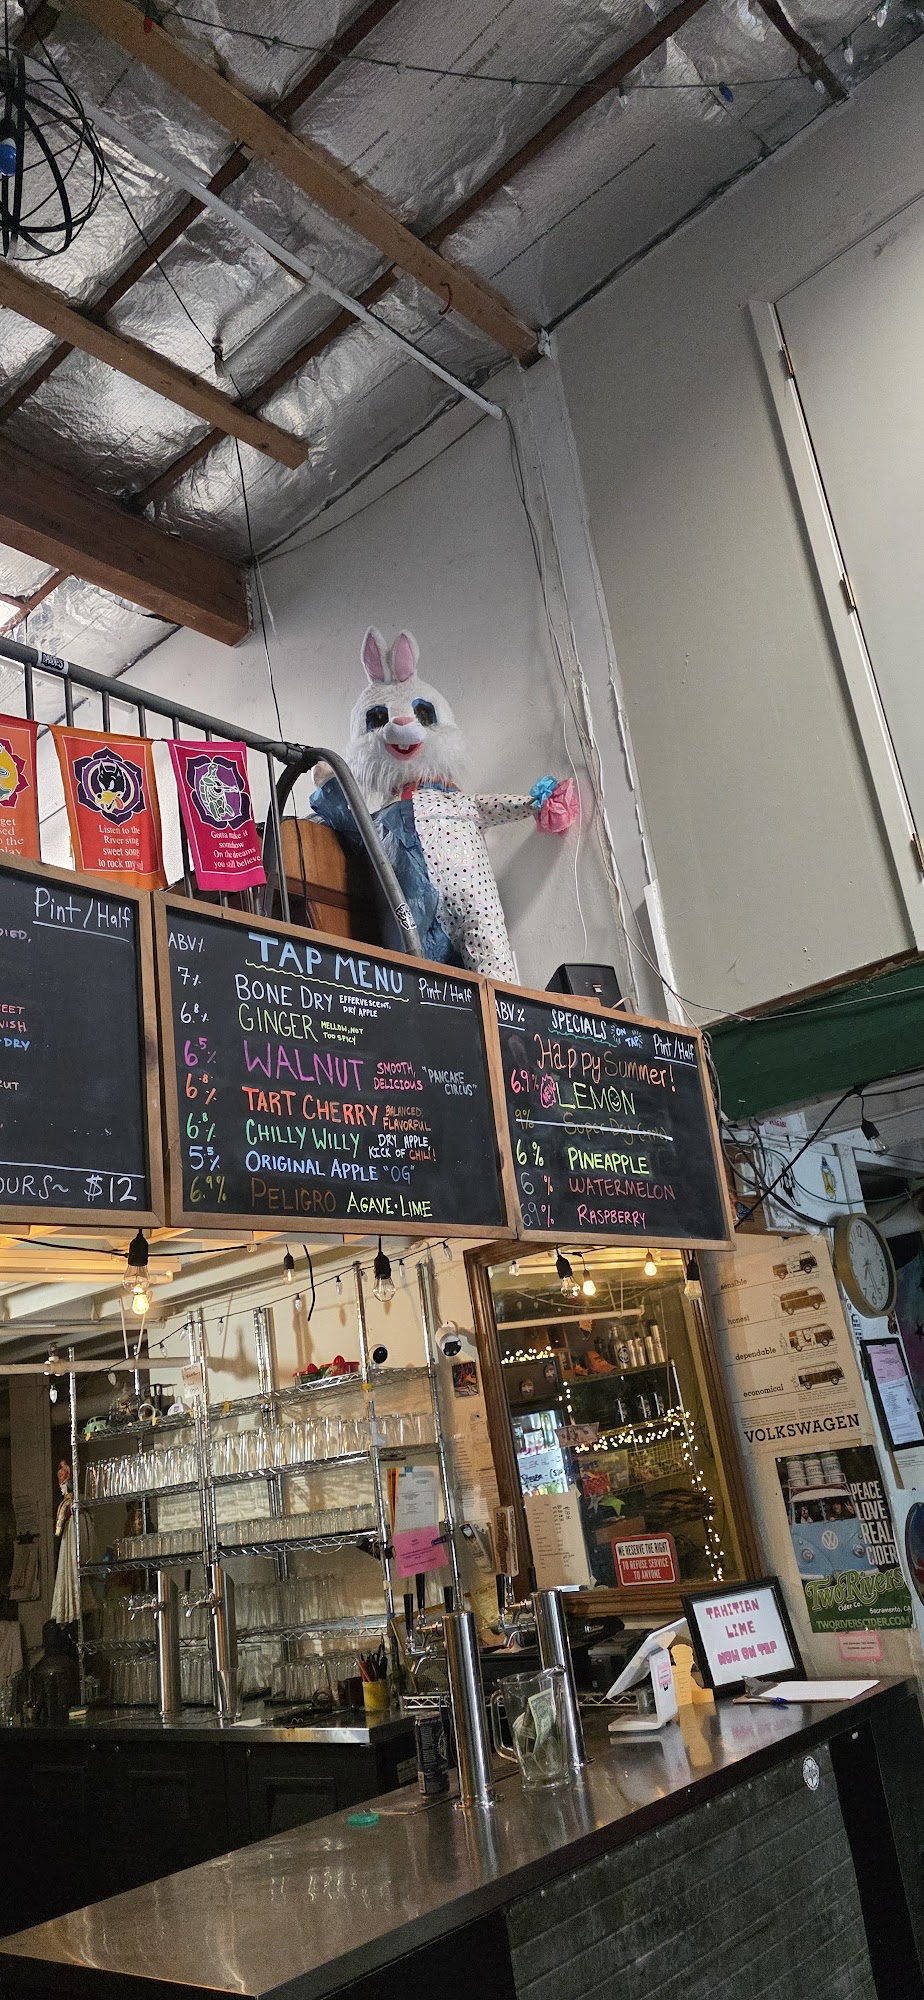 Listen to the
River sing
sweet song
to rock my
Gotta make it
somehow
On the dreams
you still believe
Pint/Half
DRY
OURS~ $12
ABV%
TAP MENU
Pint/Half
7% BONE DRY EFFERVESCENT, DRY APPLE
6.8% GINGER MELLOW, NOT TOO SPICY
6.5% WALNUT SMOOTH, DELICIOUS "PANCAKE CIRCUS"
6.8% TART CHERRY BALANCED, FLAVORFUL
6.8% CHILLY WILLY DRY APPLE, KICK OF CHILI!
5.5% ORIGINAL APPLE "OG"
6.9% PELIGRO AGAVE·LIME
ABV%
SPECIALS ON TAP
Pint/Half
Happy Summer!
6.9% LEMON
9% Super Dry
6% PINEAPPLE
6% WATERMELON
6.9% RASPBERRY
sensible
honest
dependable
economical
VOLKSWAGEN
PEACE
LOVE
REAL
CIDER
Two Rivers
Cider Co. Sacramento, CA
TWORIVERSCIDER.COM
WE RESERVE THE RIGHT
TO REFUSE SERVICE
TO ANYONE
TAHITIAN
LIME
NOW ON TAP